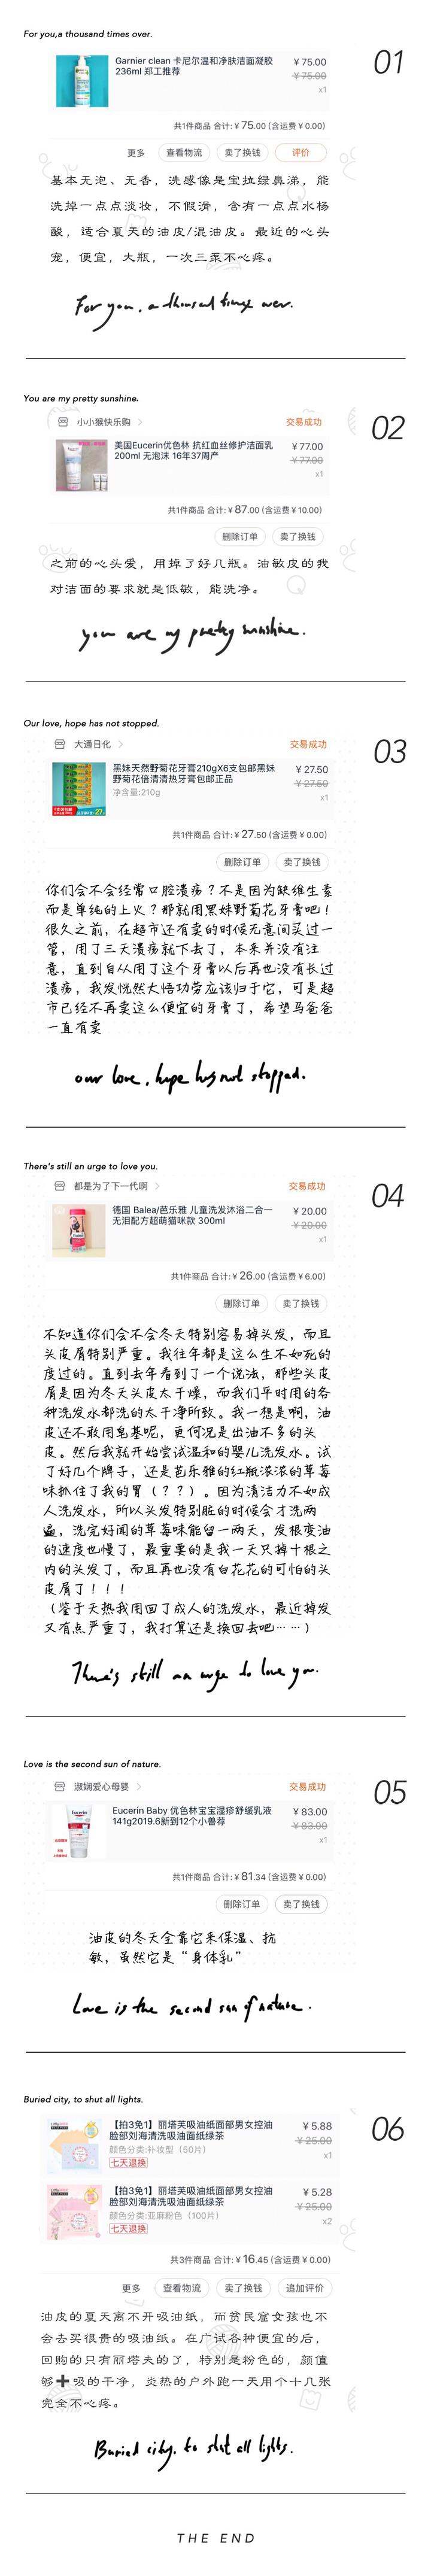 For you,a thousand times over.
01
Garnier clean 卡尼尔温和净肤洁面凝胶
236ml 郑工推荐
¥ 75.00
¥75.00
x1
共1件商品 合计: ¥ 75.00 (含运费 ¥ 0.00)
更多 查看物流 卖了换钱 评价
基本无泡、无香，洗感像是宝拉绿鼻涕，能
洗掉一点点淡妆，不假滑，含有一点点水杨
酸，适合夏天的油皮/混油皮。最近的心头
宠，便宜，大瓶，一次三泵不心疼。
For you, a thousand times over.
You are my pretty sunshine.
02
小小猴快乐购
交易成功
美国Eucerin优色林 抗红血丝修护洁面乳
200ml 无泡沫 16年37周产
¥ 77.00
¥77.00
x1
共1件商品 合计: ¥ 87.00 (含运费 ¥ 10.00)
删除订单 卖了换钱
之前的心头爱，用掉了好几瓶。油敏皮的我
对洁面的要求就是低敏，能洗净。
you are my pretty sunshine.
Our love, hope has not stopped.
03
大通日化
交易成功
黑妹天然野菊花牙膏210gX6支包邮黑妹
野菊花倍清清热牙膏包邮正品
净含量:210g
¥ 27.50
¥27.50
x1
共1件商品 合计: ¥ 27.50 (含运费 ¥ 0.00)
删除订单 卖了换钱
你们会不会经常口腔溃疡？不是因为缺维生素
而是单纯的上火？那就用黑妹野菊花牙膏吧！
很久之前，在超市还有卖的时候无意间买过一
管，用了三天溃疡就下去了，本来并没有注
意，直到自从用了这个牙膏以后再也没有长过
溃疡，我发恍然大悟功劳应该归于它，可是超
市已经不再卖这么便宜的牙膏了，希望马爸爸
一直有卖
our love, hope has not stopped.
There's still an urge to love you.
04
都是为了下一代啊
交易成功
德国 Balea/芭乐雅 儿童洗发沐浴二合一
无泪配方超萌猫咪款 300ml
¥ 20.00
¥20.00
x1
共1件商品 合计: ¥ 26.00 (含运费 ¥ 6.00)
删除订单 卖了换钱
不知道你们会不会冬天特别容易掉头发，而且
头皮屑特别严重。我往年都是这么生不如死的
度过的。直到去年看到了一个说法，那些头皮
屑是因为冬天头皮太干燥，而我们平时用的各
种洗发水都洗的太干净所致。我一想是啊，油
皮还不敢用皂基呢，更何况是出油不多的头
皮。然后我就开始尝试温和的婴儿洗发水。试
了好几个牌子，还是芭乐雅的红瓶浓浓的草莓
味抓住了我的胃（？？）。因为清洁力不如成
人洗发水，所以头发特别脏的时候会才洗两
遍，洗完好闻的草莓味能留一两天，发根变油
的速度也慢了，最重要的是我一天只掉十根之
内的头发了，而且再也没有白花花的可怕的头
皮屑了！！！
（鉴于天热我用回了成人的洗发水，最近掉发
又有点严重了，我打算还是换回去吧……）
There's still an urge to love you.
Love is the second sun of nature.
05
淑娴爱心母婴
交易成功
Eucerin Baby 优色林宝宝湿疹舒缓乳液
141g2019.6新到12个小兽荐
¥ 83.00
¥83.00
x1
共1件商品 合计: ¥ 81.34 (含运费 ¥ 0.00)
删除订单 卖了换钱
油皮的冬天全靠它来保湿、抗
敏，虽然它是“身体乳”
Love is the second sun of nature.
Buried city, to shut all lights.
06
【拍3免1】丽塔芙吸油纸面部男女控油
脸部刘海清洗吸油面纸绿茶
颜色分类:补妆型（50片）
七天退换
¥ 5.88
¥25.00
x1
【拍3免1】丽塔芙吸油纸面部男女控油
脸部刘海清洗吸油面纸绿茶
颜色分类:亚麻粉色（100片）
七天退换
¥ 5.28
¥25.00
x2
共3件商品 合计: ¥ 16.45 (含运费 ¥ 0.00)
更多 查看物流 卖了换钱 追加评价
油皮的夏天离不开吸油纸，而贫民窟女孩也不
会去买很贵的吸油纸。在广试各种便宜的后，
回购的只有丽塔夫的了，特别是粉色的，颜值
够➕吸的干净，炎热的户外跑一天用个十几张
完全不心疼。
Buried city, to shut all lights.
THE END